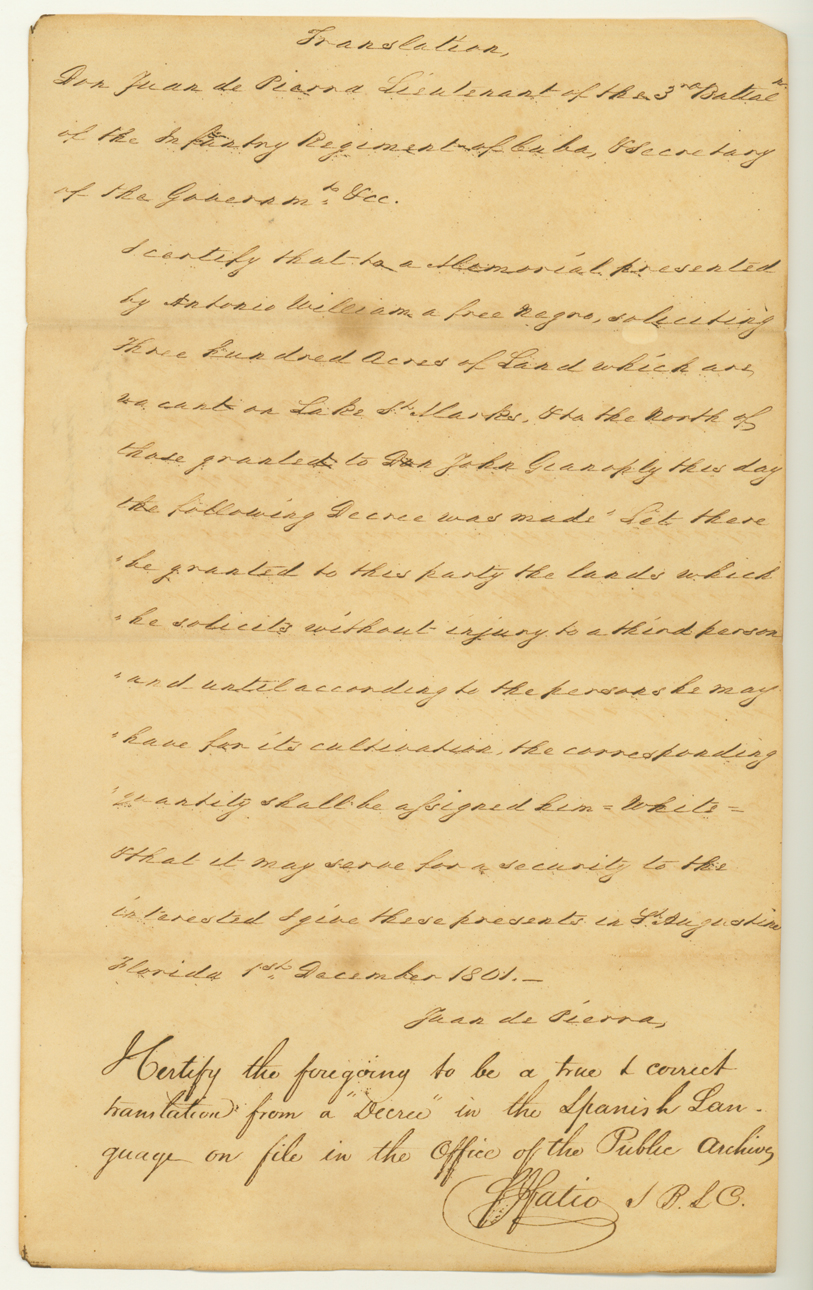 Translation,
Don Juan de Pierra Lieutenant of the 3rd Battaln.
of the Infantry Regiment of Cuba, & Secretary
of the Governmto. &cc.
I certify that to a Memorial presented
by Antonio William a free Negro, soliciting
three hundred Acres of Land which are
vacant on Lake St. Marks, & to the North of
those granted to Don John Gianoply this day
the following Decree was made "Let there
"be granted to this party the lands which
"he solicits without injury to a third person
"and until according to the persons he may
"have for its cultivation, the corresponding
"quantity shall be assigned him = White =
& that it may serve for a security to the
interested I give these presents in St. Augustine
Florida 1st. December 1801. —
Juan de Pierra,
I Certify the foregoing to be a true & correct
translation from a "Decree" in the Spanish Lan-
guage on file in the Office of the Public Archives
Fatio S B. L C.